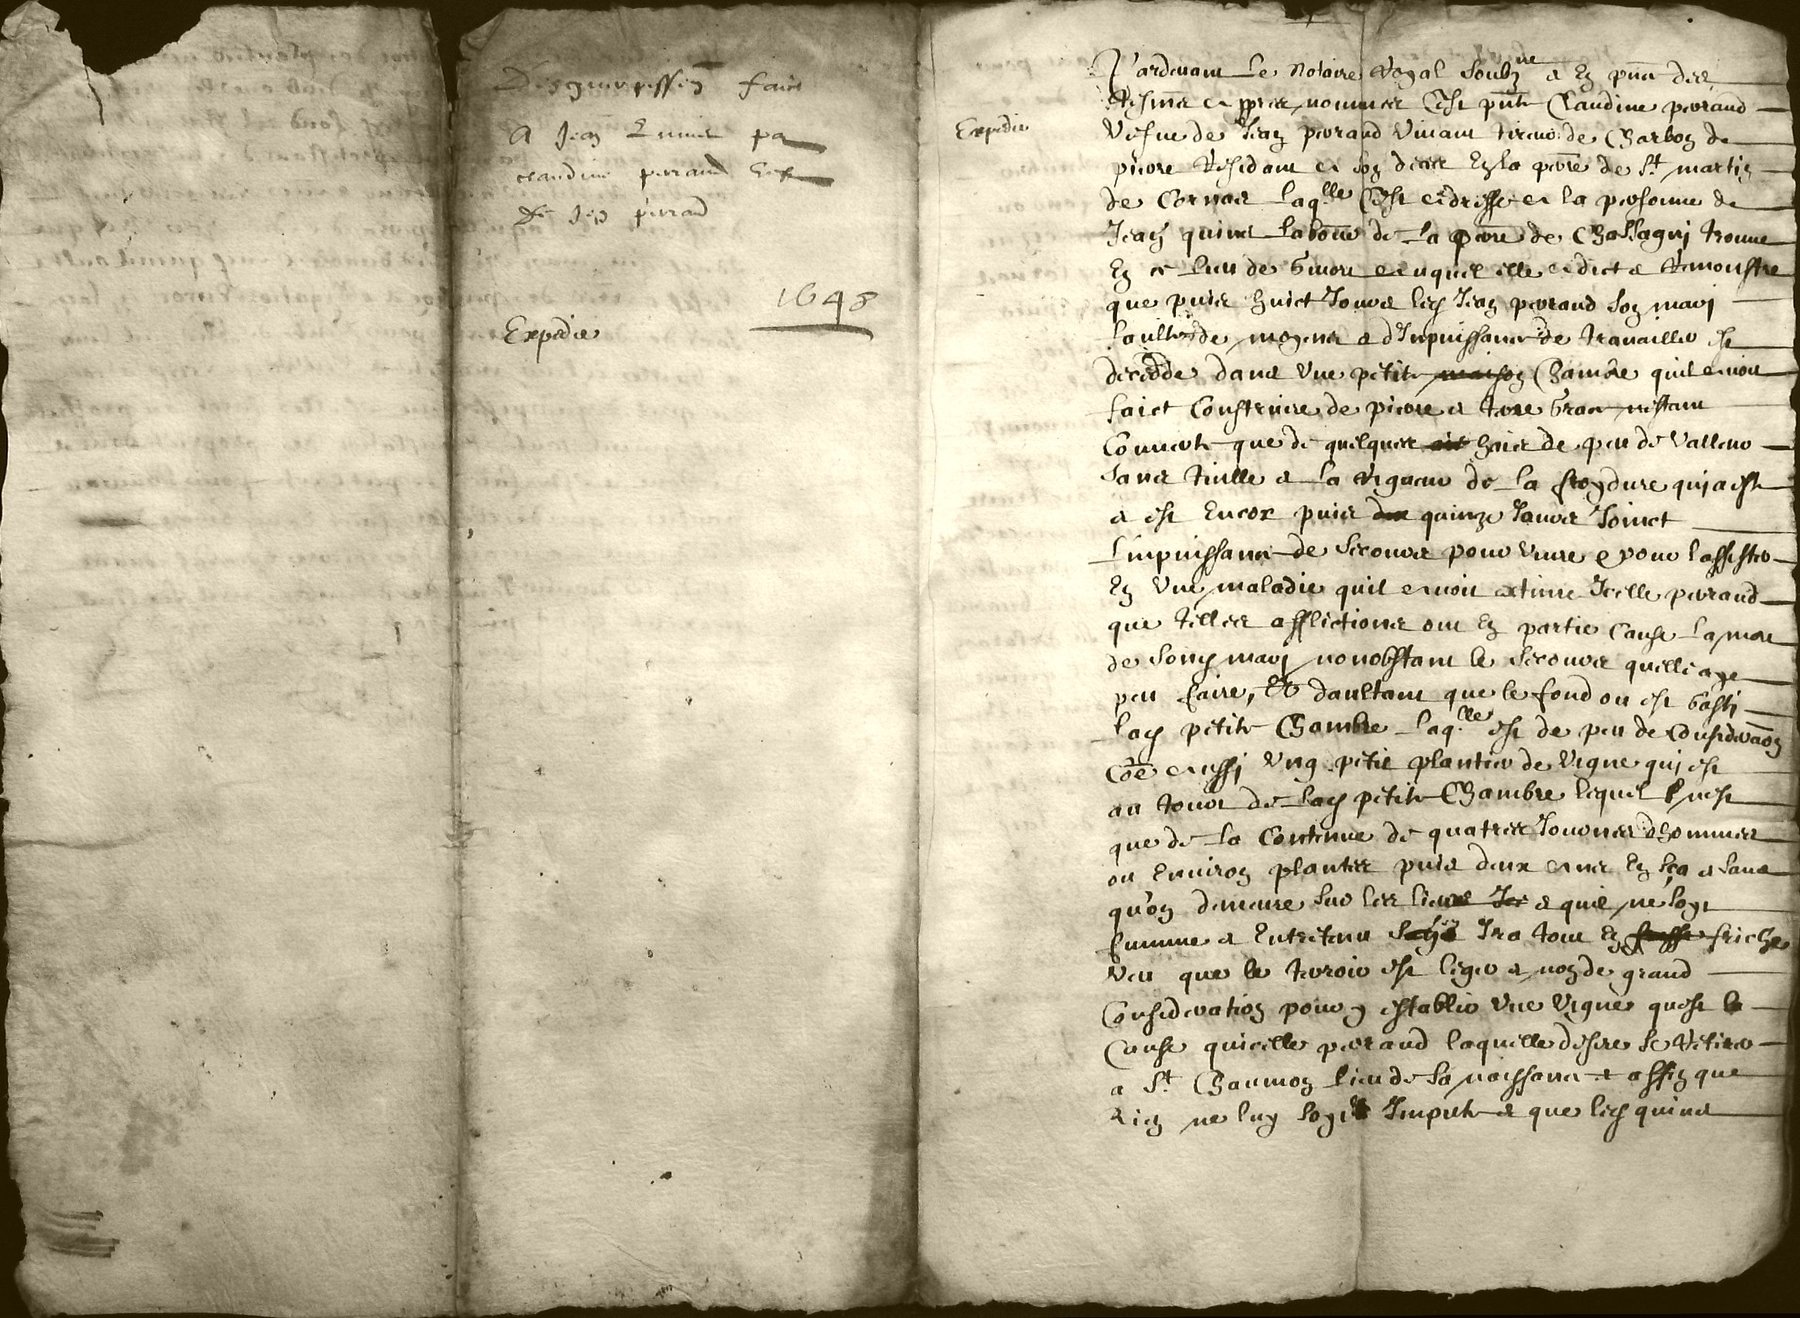 Desguerpissem̄ faict
A Jean quine par
claudine perraud vef
de Jeā perraud
1648
Expedie
Expedie
Pardevant le Notaire Royal soubzne & en pn̄ce des
tesmz cy apres nommes sest pn̄te Claudine perraud
vefve de Jean perraud vivant tireur de Charbon de
pierre Residant a son deces En la parre de St martin
de Cornas laqlle sest adresse a la personne de
Jean quine laboure de la parre de Chassagnj trouve
En ce lieu de Givort auquel elle a dict & Remonstre
que puis huict Jours led Jean perraud son marj
faulte de moyens & dInpuissance de travailler est
decedde dans une petite Chambre quil avoit
faict Construire de pierre & terre Grace nestant
Couverte que de quelques hais de peu de valleur
sans tuille & la rigueur de la froydure quj a este
& est Encor puis quinze Jours Joinct
Linpuissance de secours pour vivre & pour lassister
En une maladie quil avoit Icelle perraud
que telles afflictions ont En partie Cause la mort
de sond marj nonobstant le secours quelle aye
peu faire, Et daultant que le fond ou est basti
lad petite Chambre laqlle est de peu de Consideraōn
Cōe aussj ung petit plantier de vigne quj est
au tour de lad petite Chambre lequel nest
que de la Contenue de quatres Journes dhommes
ou Environ plantes puis deux ans En sea & sans
qu'on demeure sur les lieux & quil ne soyt
fumme & Entretenu Ira tout En friche
veu que le terroir est leger & non de grand
Consideration pour y establir une vigne quest la
Cause quicelle perraud laquelle desire se Retirer
a St Chaumon lieu de sa naissance & affin que
Rien ne luy soyt Impute & que led quine